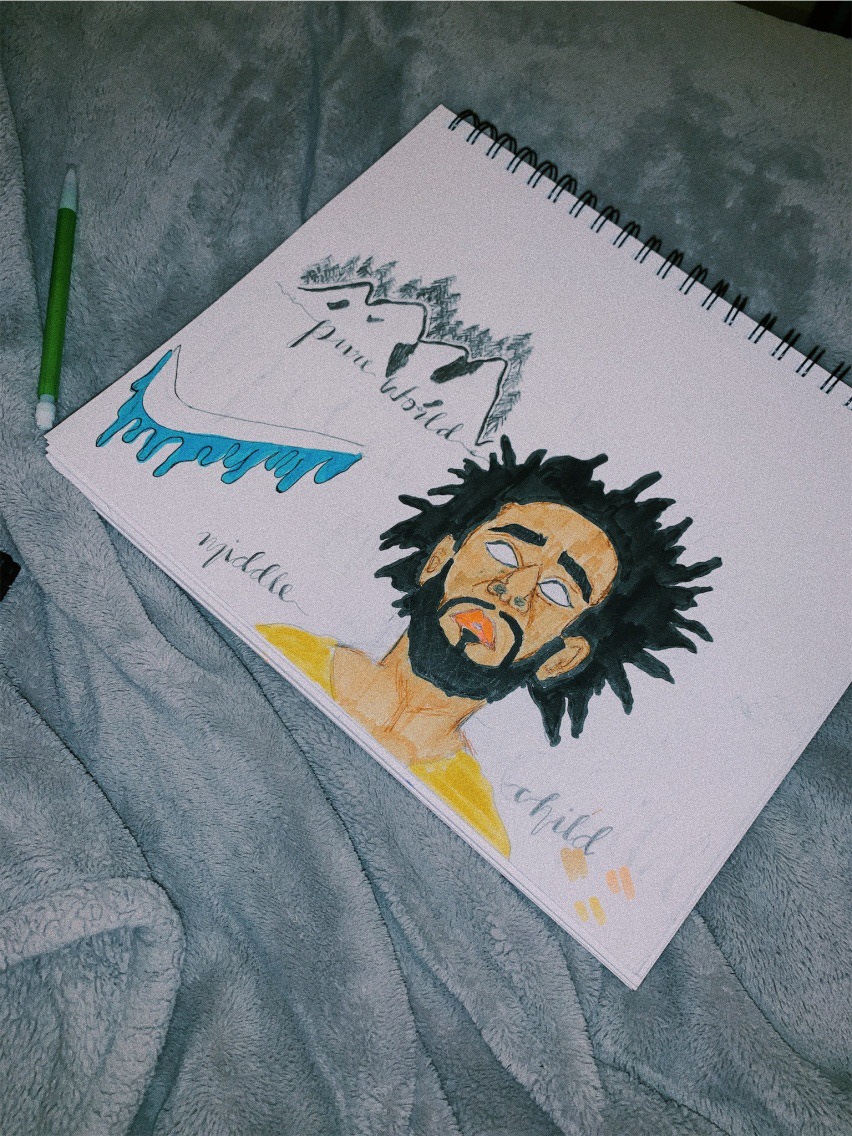 pure world
middle
child